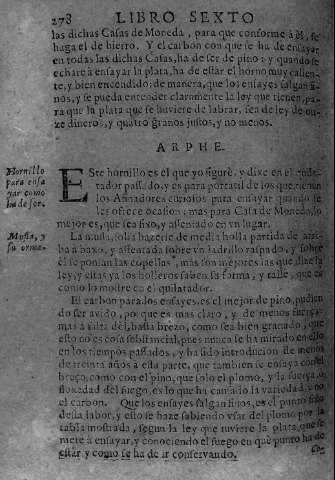 278 LIBRO SEXTO
las dichas Casas de Moneda, para que conforme à él, se
haga el de hierro. Y el carbon con que se ha de ensayar
en todas las dichas Casas, ha de ser de pino: y quando se
echare à ensayar la plata, ha de estar el horno muy calien-
te, y bien encendido: de manera, que los ensayes salgan fi-
nos, y se pueda entender claramente la ley que tienen, pa-
ra que la plata que se huviere de labrar, sea de ley de on-
ze dineros, y quatro granos justos, y no menos.
ARPHE.
Hornillo
para ensa
yar como
ha de ser.
ESte hornillo es el que yo figurè, y dixe en el
tador passado, y es para portatil de los que tienen
los Afinadores curiosos para ensayar quando se
les ofrece ocasion: mas para Casa de Moneda, lo
mejor es, que sea fixo, y assentado en vn lugar.
Mufla, y
su forma.
La mufla, solia hazerse de media holla partida de arri-
ba à baxo, y assentada sobre vn ladrillo raspado, y sobre
el se ponian las copellas, mas son mejores las que dize la
ley, y estas ya los holleros saben su forma, y talle, que es
como lo mostre en el quilatador.
El carbon para los ensayes, es el mejor de pino, pudien
do ser avido, porque es mas claro, y de menos fuerça
mas à falta del, basta brezo, como sea bien granado, que
esto no es cosa substancial, pues nunca se ha mirado en ello
en los tiempos passados, y ha sido introducion de menos
de treinta años à esta parte, que tambien se ensaya con el
breço, como con el pino, que solo el plomo, y la fuerça, ò
floxedad del fuego, es lo que ha causado la variedad, y no
el carbon. Que los ensayes salgan finos, es el punto fixo
desta labor, y esto se haze sabiendo vsar del plomo por la
tabla mostrada, segun la ley que tuviere la plata, que se
mete à ensayar, y conociendo el fuego en que punto ha de
estar y como se ha de ir conservando.